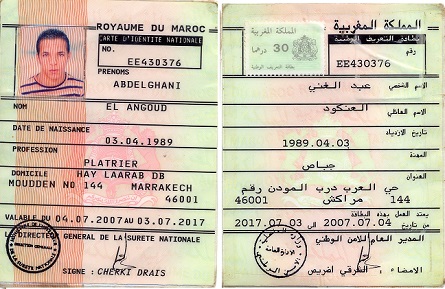 ROYAUME DU MAROC
CARTE D'IDENTITE NATIONALE
NO.
EE430376
PRENOMS
ABDELGHANI
NOM
EL ANGOUD
DATE DE NAISSANCE
03.04.1989
PROFESSION
PLATRIER
DOMICILE HAY LAARAB DB
MOUDDEN NO 144 MARRAKECH
46001
VALABLE DU 04.07.2007 AU 03.07.2017
LE DIRECTEUR GENERAL DE LA SURETE NATIONALE
SIGNE : CHERKI DRAIS
المملكة المغربية
بطاقة التعريف الوطنية
رقم
EE430376
المملكة المغربية
30 درهما
الاسم الشخصي عبد الغني
الاسم العائلي العنكود
تاريخ الازدياد
1989.04.03
المهنة
جباص
العنوان
حي العرب درب المودن رقم
144 مراكش 46001
يعتد العمل بهذه البطاقة
2007.07.04 2017.07.03
المدير العام للأمن الوطني
الامضاء : الشرقي اضريس